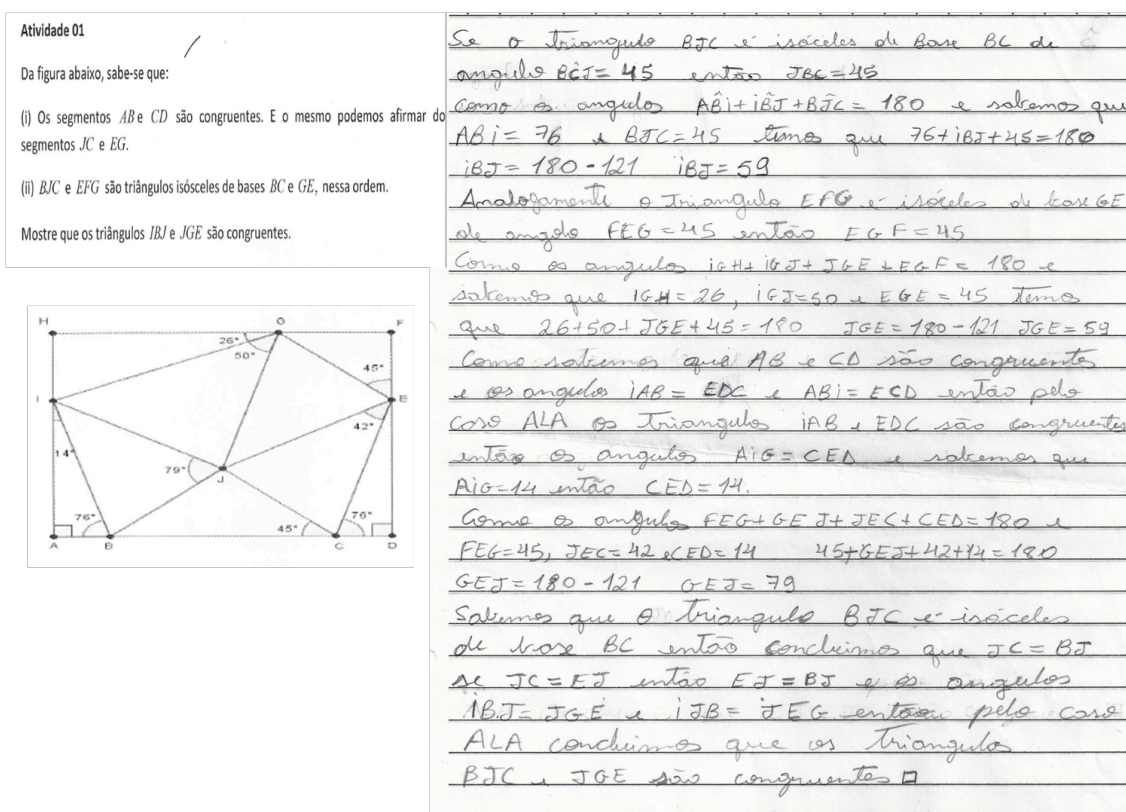 Atividade 01
Da figura abaixo, sabe-se que:
(i) Os segmentos AB e CD são congruentes. E o mesmo podemos afirmar do
segmentos JC e EG.
(ii) BJC e EFG são triângulos isósceles de bases BC e GE, nessa ordem.
Mostre que os triângulos IBJ e JGE são congruentes.
H
G
F
26°
50°
45°
I
E
42°
14°
79°
J
76°
45°
76°
A
B
C
D
Se o triangulo BJC é isóceles de Base BC de
angulo BCJ = 45 então JBC = 45
como os angulos ABi + iBJ + BJC = 180 e sabemos que
ABi = 76 e BJC = 45 temos que 76+iBJ+45=180
iBJ = 180 - 121 iBJ = 59
Analogamente o Triangulo EFG é isóceles de base GE
de angulo FEG = 45 então EGF = 45
Como os angulos iGH + iGJ + JGE + EGF = 180 e
sabemos que IGH = 26, iGJ = 50 e EGE = 45 temos
que 26+50+JGE+45=180 JGE = 180-121 JGE = 59
Como sabemos que AB e CD são congruentes
e os angulos iAB = EDC e ABi = ECD então pelo
caso ALA os Triangulos iAB e EDC são congruentes
então os angulos AiG = CED e sabemos que
AiG = 14 então CED = 14.
Como os angulos FEG + GEJ + JEC + CED = 180 e
FEG = 45, JEC = 42 e CED = 14 45+GEJ+42+14 = 180
GEJ = 180 - 121 GEJ = 79
Sabemos que o triangulo BJC é isóceles
de base BC então concluimos que JC = BJ
se JC = EJ então EJ = BJ e os angulos
iBJ = JGE e iJB = JEG então pelo caso
ALA concluimos que os triangulos
BJC e JGE são congruentes □